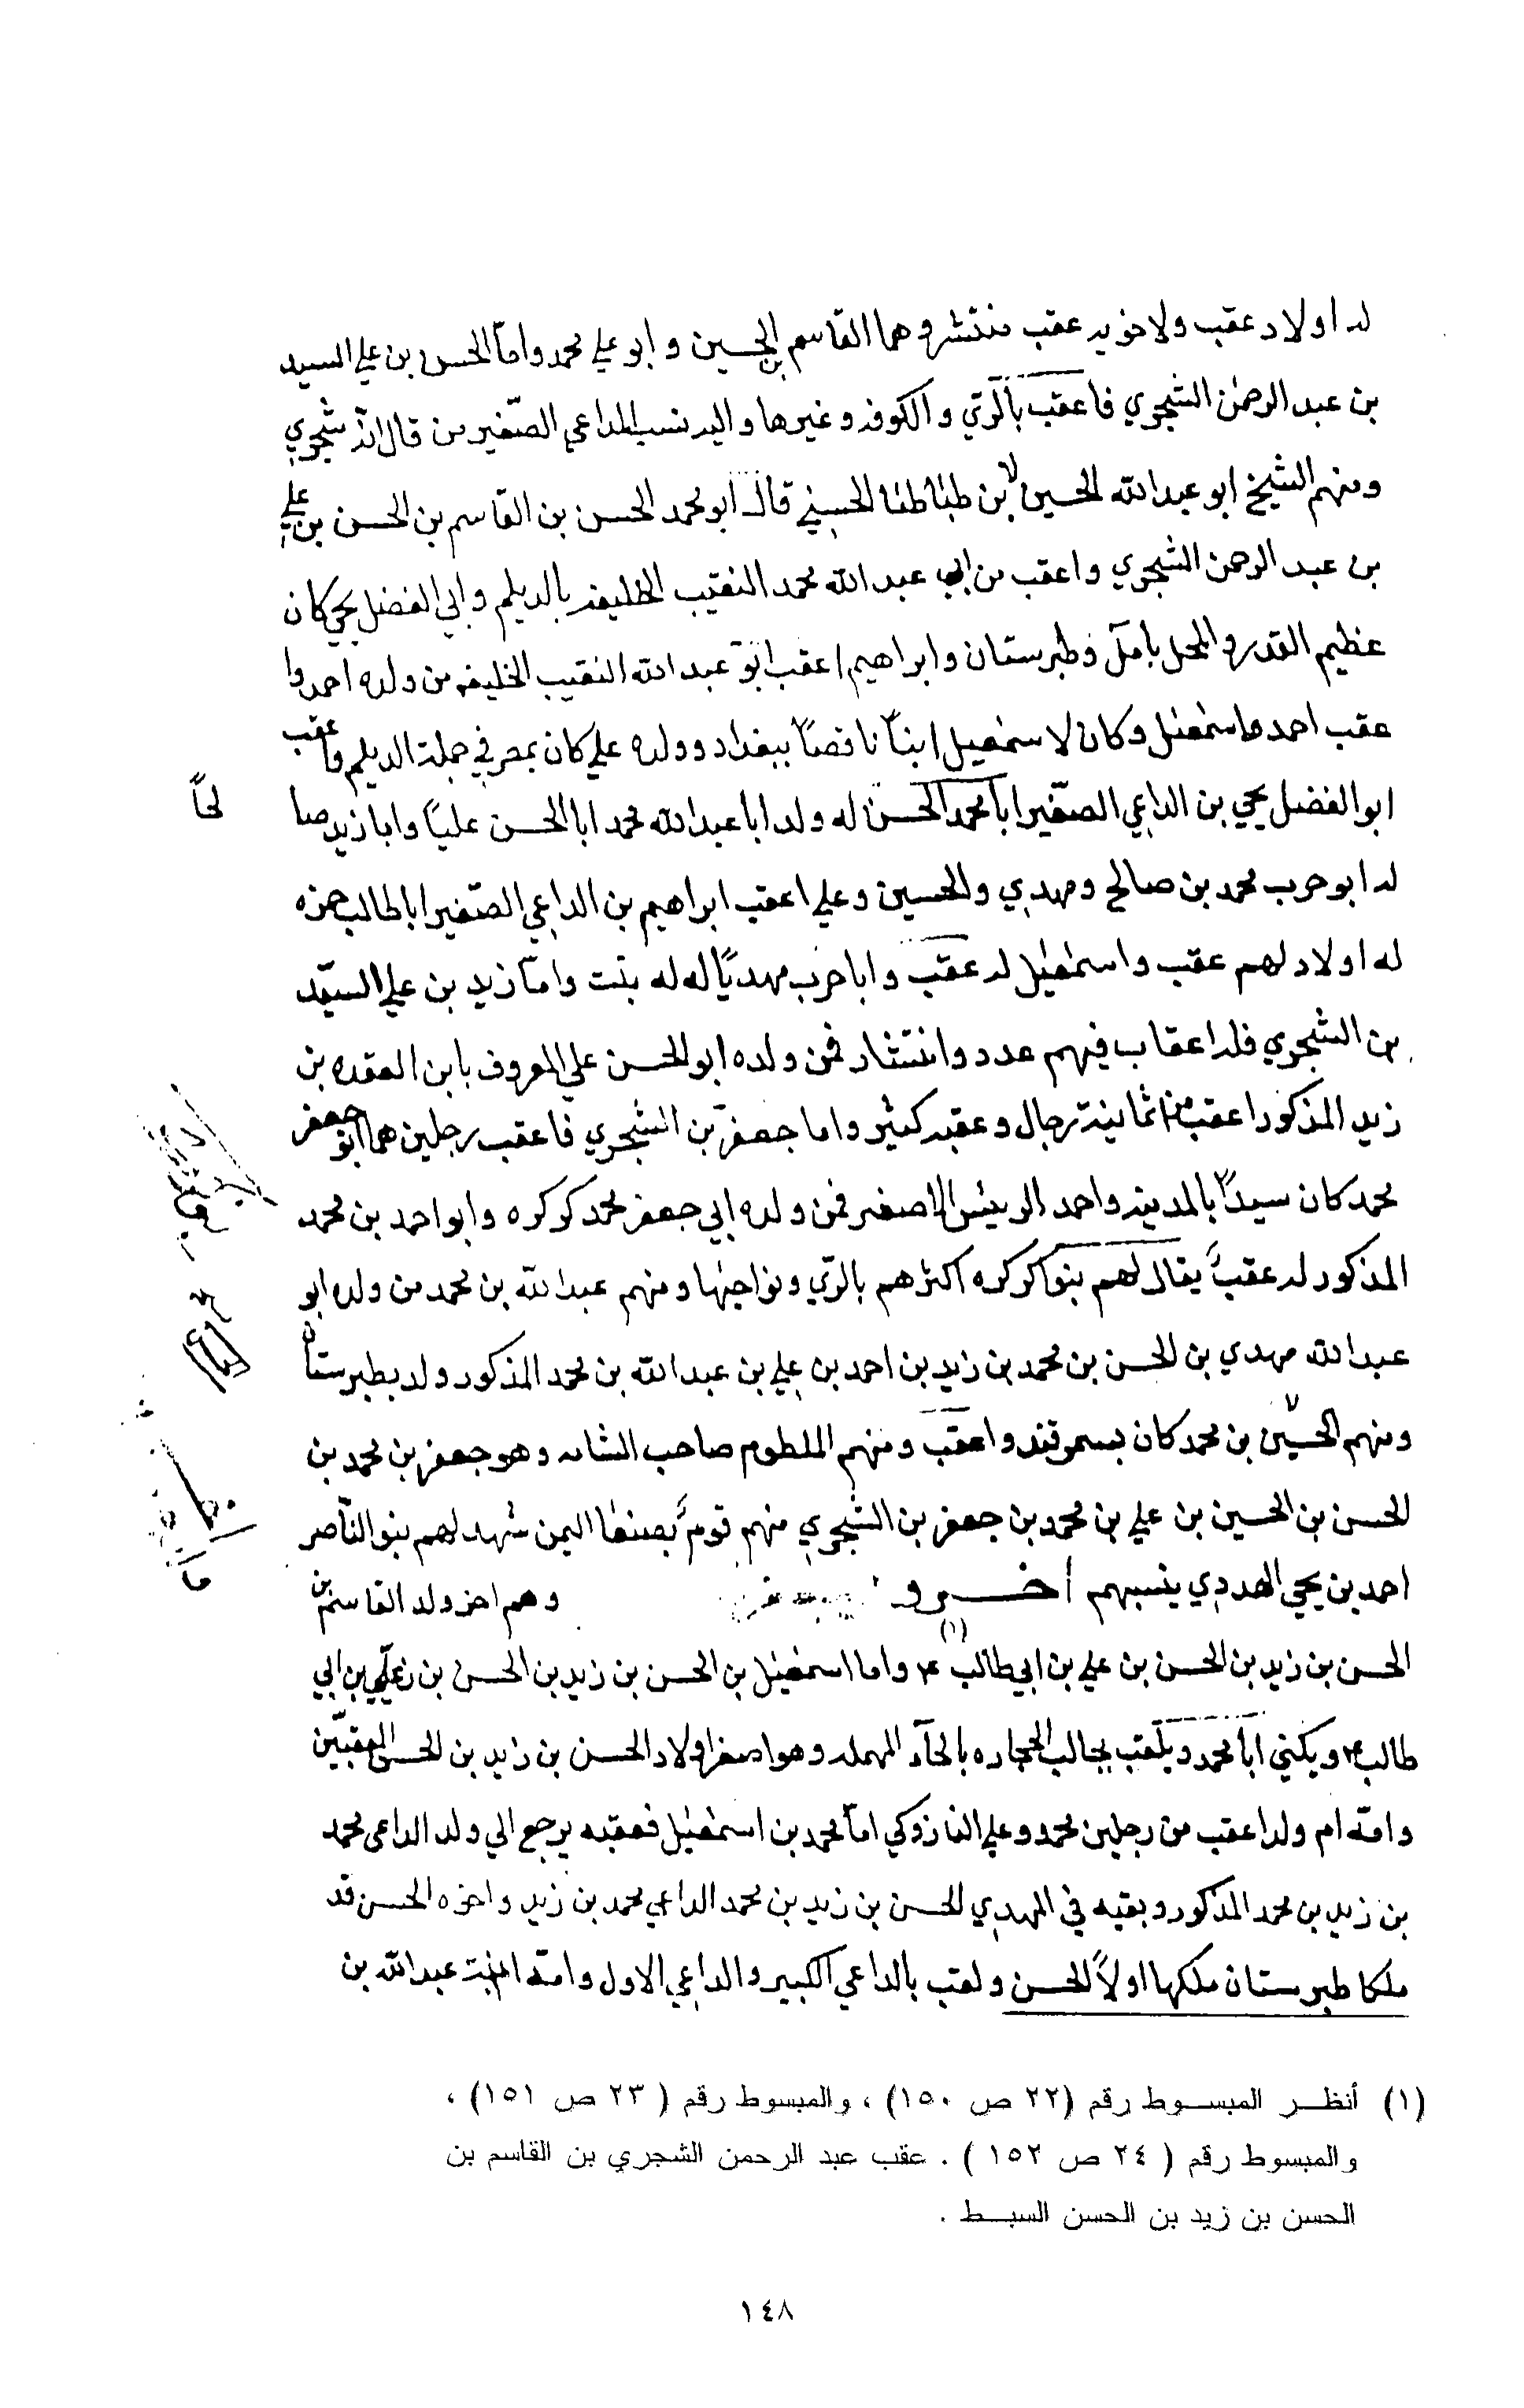 له اولاد عقب ولاخويه عقب منتشر وهما القاسم بن الحسين وابو علي محمد واما الحسن بن علي السيد
بن عبد الرحمن الشجري فاعقب بالري والكوفه وغيرها واليه نسب الداعي الصغير من قال انه شجري
ومنهم الشيخ ابو عبدالله الحسين بن طباطبا الحسني قال ابو محمد الحسن بن القاسم بن الحسن بن علي
بن عبد الرحمن الشجري واعقب من ابي عبدالله محمد النقيب الخليفه بالديلم وابي الفضل يحي كان
عظيم القدر والمحل بآمل وطبرستان وابراهيم اعقب ابو عبدالله النقيب الخليفه من ولده احمد وا
عقب احمد واسمعيل وكان لاسمعيل ابناً ناقصاً ببغداد وولده علي كان بمصر في جملة الديلم واعقب
ابو الفضل يحي بن الداعي الصغير ابا محمد الحسن له ولد ابا عبدالله محمد ابا الحسن علياً وابا زيد صا
لحاً
له ابو حرب محمد بن صالح ومهدي والحسين وعلي اعقب ابراهيم بن الداعي الصغير ابا طالب حمزه
له اولاد لهم عقب واسمعيل له عقب وابا حرب مهدياً له له بنت واما زيد بن علي السيد
بن الشجري فله اعقاب فيهم عدد وانتشار فمن ولده ابو الحسن علي المعروف بابن العقده بن
زيد المذكور اعقب من ثمانية رجال وعقبه كثير واما جعفر بن الشجري فاعقب رجلين هما ابو جعفر
محمد كان سيداً بالمدينه واحمد الرئيس الاصغر فمن ولده ابي جعفر محمد كوكره وابو احمد بن محمد
المذكور له عقب يقال لهم بنو كوكره اكثرهم بالري ونواحيها ومنهم عبدالله بن محمد من ولده ابو
عبدالله مهدي بن الحسن بن محمد بن زيد بن احمد بن علي بن عبدالله بن محمد المذكور ولد بطبرستان
ومنهم الحسين بن محمد كان بسمرقند واعقب ومنهم الملطوم صاحب الشامه وهو جعفر بن محمد بن
الحسن بن الحسين بن علي بن محمد بن جعفر بن الشجري منهم قوم بصنعا اليمن شهد لهم بنو الناصر
احمد بن يحي الهدي ينسبهم وهم اخر ولد القاسم بن
(١)
الحسن بن زيد بن الحسن بن علي بن ابي طالب ع واما اسمعيل بن الحسن بن زيد بن الحسن بن علي بن ابي
طالب ع ويكني ابا محمد ويلقب بجالب الحجاره بالحآء المهمله وهو اصغر اولاد الحسن بن زيد بن الحسن المعقبين
وامه ام ولد اعقب من رجلين محمد وعلي النازوكي اما محمد بن اسمعيل فعقبه يرجع الي ولد الداعي محمد
بن زيد بن محمد المذكور وبقيه في المهدي الحسن بن زيد بن محمد الداعي محمد بن زيد واخوه الحسن قد
ملكا طبرستان ملكها اولاً الحسن ولقب بالداعي الكبير والداعي الاول وامه ابنة عبدالله بن
(١) أنظر المبسوط رقم (٢٢ ص ١٥٠) ، والمبسوط رقم ( ٢٣ ص ١٥١) ،
والمبسوط رقم ( ٢٤ ص ١٥٢ ) . عقب عبد الرحمن الشجري بن القاسم بن
الحسن بن زيد بن الحسن السبط .
١٤٨